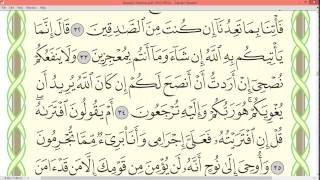 فَأْتِنَا بِمَا تَعِدُنَآ إِن كُنتَ مِنَ ٱلصَّٰدِقِينَ ٣٢ قَالَ إِنَّمَا
يَأْتِيكُم بِهِ ٱللَّهُ إِن شَآءَ وَمَآ أَنتُم بِمُعْجِزِينَ ٣٣ وَلَا يَنفَعُكُمْ
نُصْحِىٓ إِنْ أَرَدتُّ أَنْ أَنصَحَ لَكُمْ إِن كَانَ ٱللَّهُ يُرِيدُ أَن
يُغْوِيَكُمْ ۚ هُوَ رَبُّكُمْ وَإِلَيْهِ تُرْجَعُونَ ٣٤ أَمْ يَقُولُونَ ٱفْتَرَىٰهُ ۖ
قُلْ إِنِ ٱفْتَرَيْتُهُۥ فَعَلَىَّ إِجْرَامِى وَأَنَا۠ بَرِىٓءٌ مِّمَّا تُجْرِمُونَ ٣٥
وَأُوحِىَ إِلَىٰ نُوحٍ أَنَّهُۥ لَن يُؤْمِنَ مِن قَوْمِكَ إِلَّا مَن قَدْ ءَامَنَ